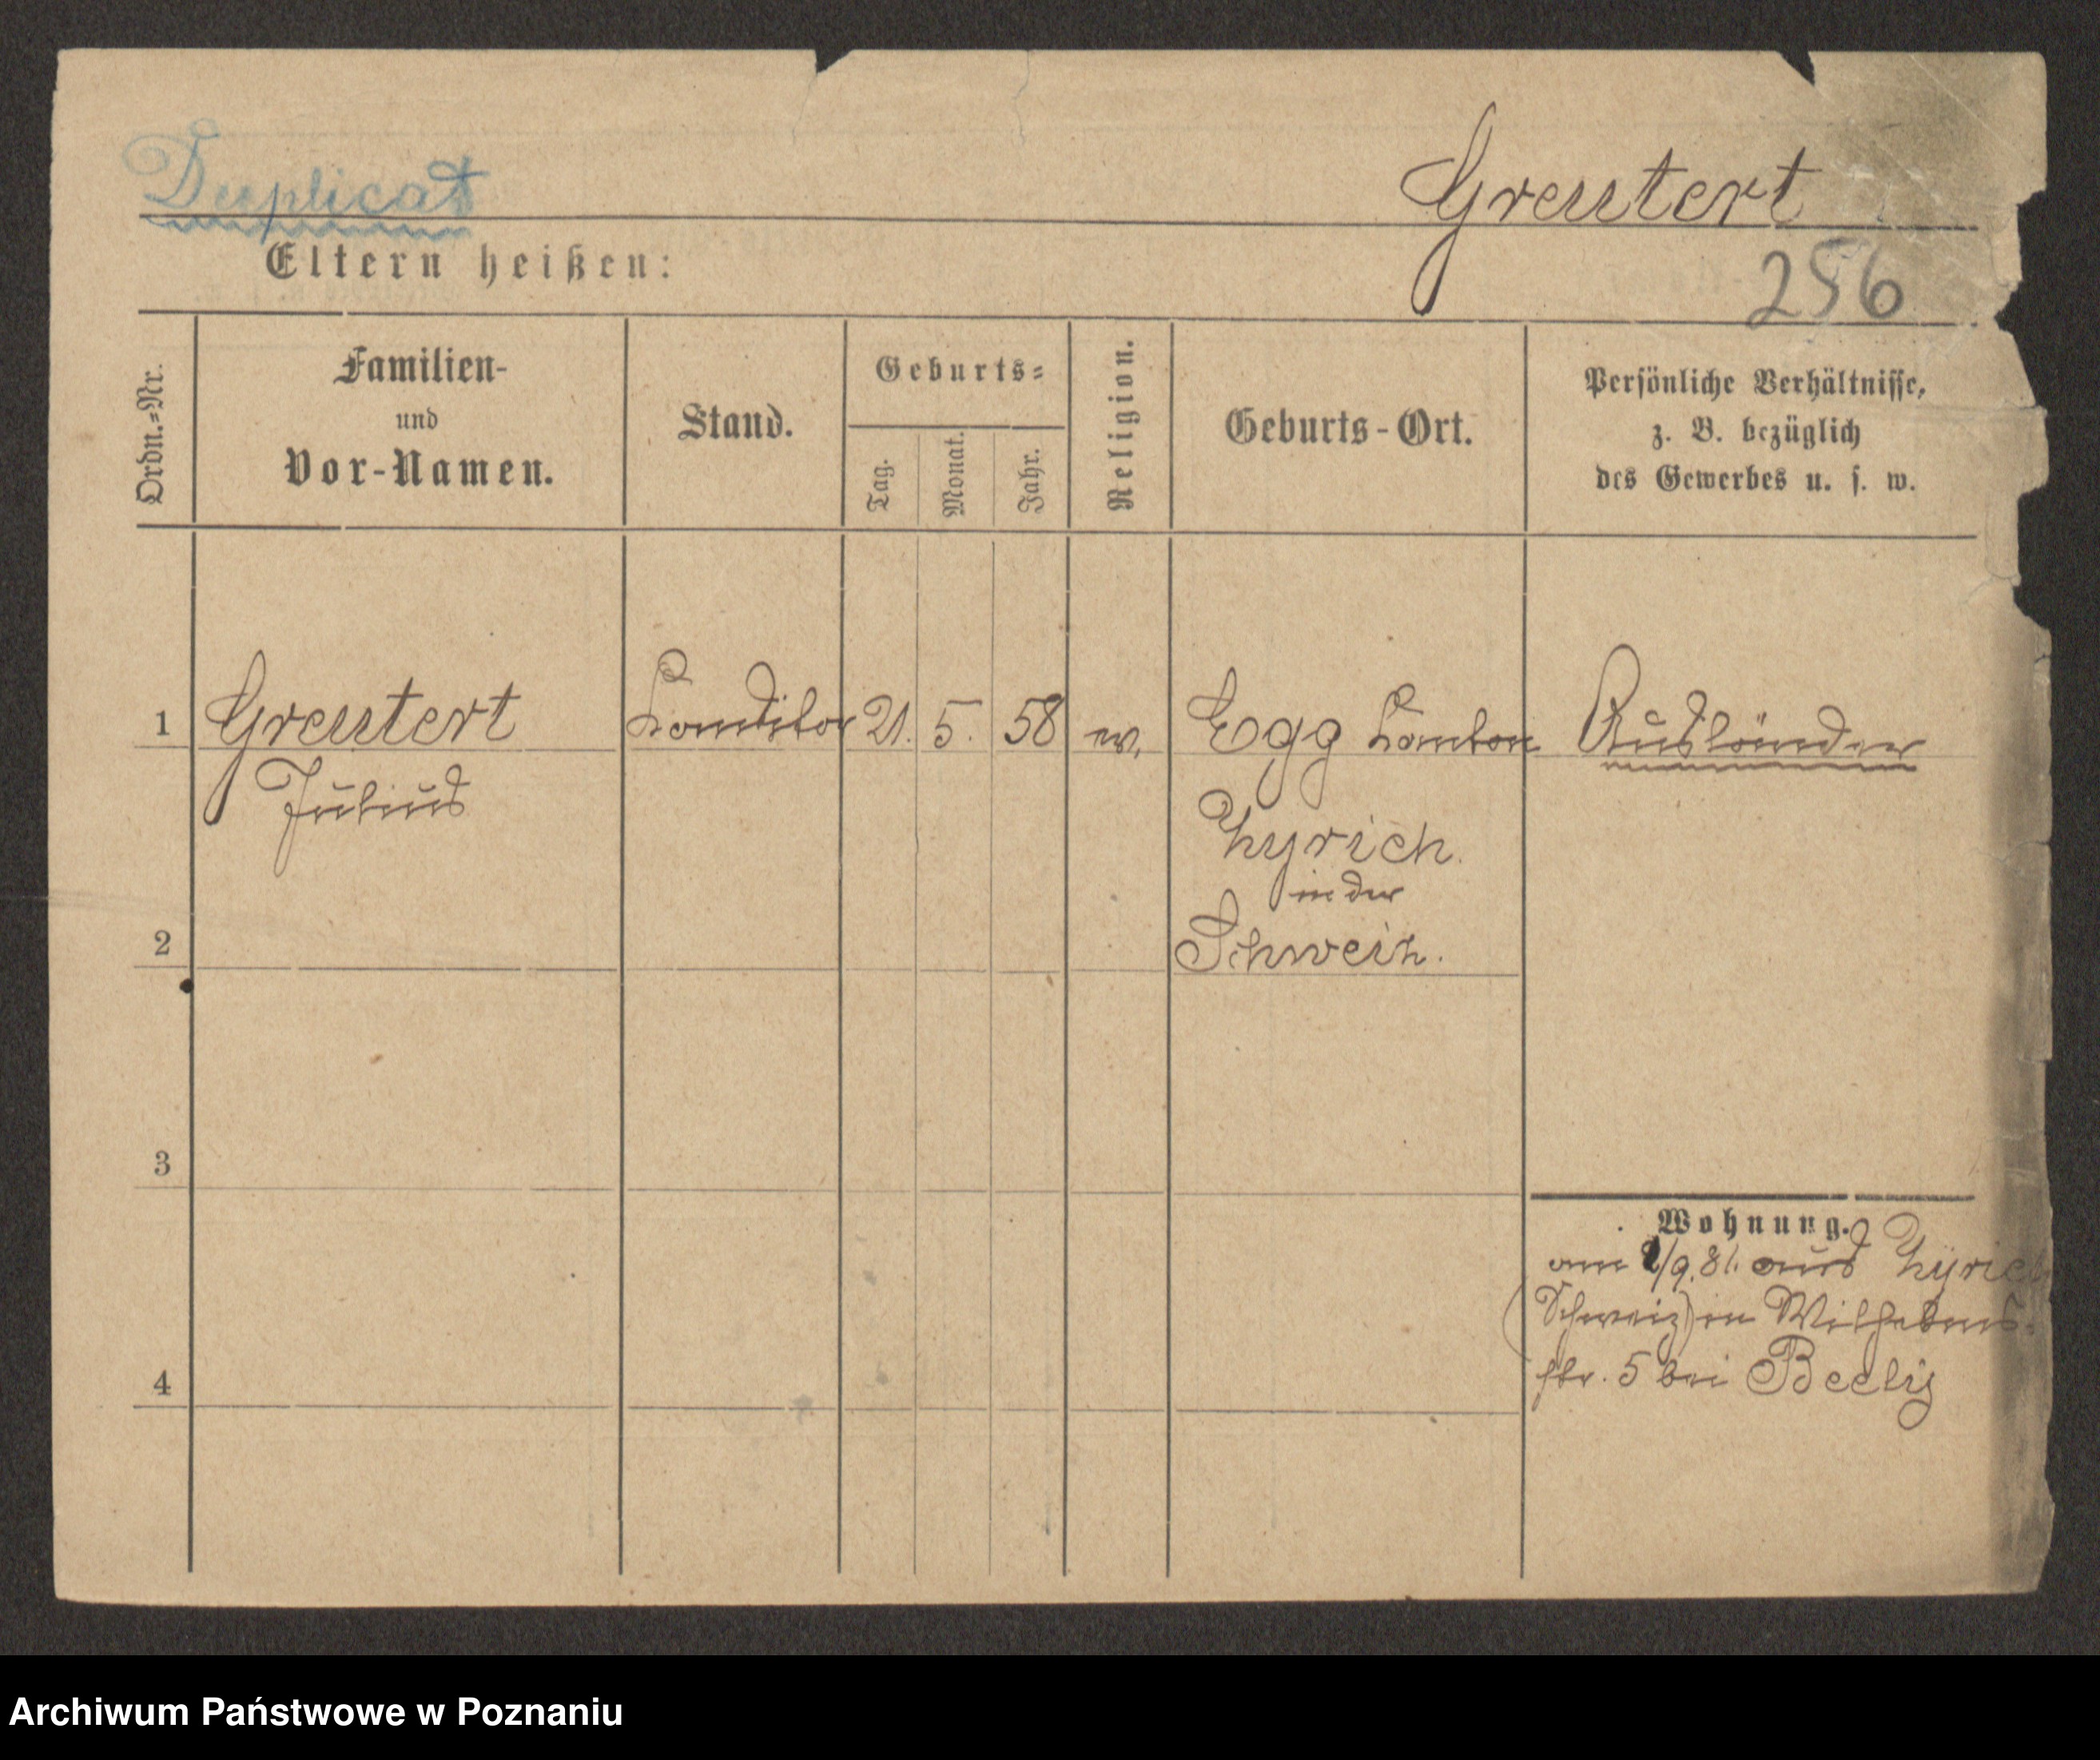 Duplicat
Greutert
Eltern heißen:
256
Ordn.=Nr.
Familien-
und
Vor-Namen.
Stand.
Geburts=
Tag.
Monat.
Jahr.
Religion.
Geburts-Ort.
Persönliche Verhältnisse,
z. B. bezüglich
des Gewerbes u. s. w.
1 Greutert Conditor 21. 5. 58 ev. Egg Canton Ausländer
Julius
Zyrich.
in der
2 Schweiz.
3
Wohnung.
am /9.81. aus Zyrich
(Schweiz) in Wilhelms-
4 str. 5 bei Beely
Archiwum Państwowe w Poznaniu